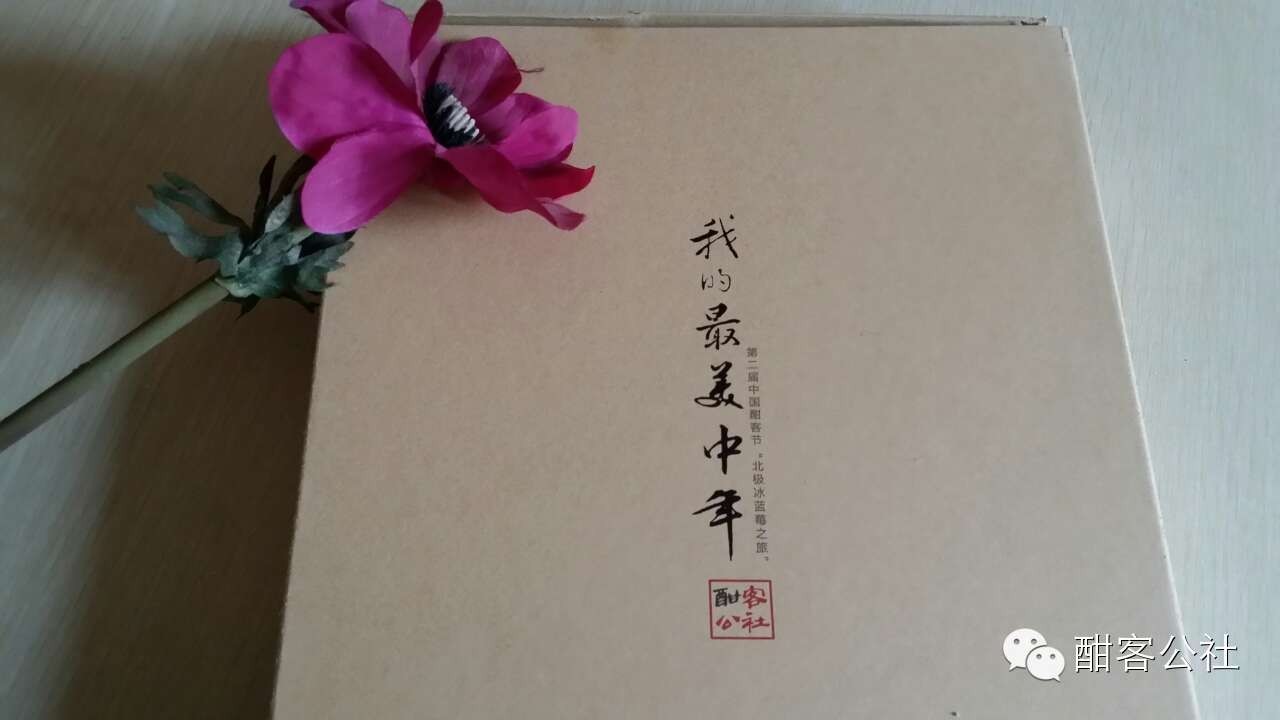 我的最美中年
第二届中国酣客节“北极冰蓝莓之旅”
酣客
公社
酣客公社